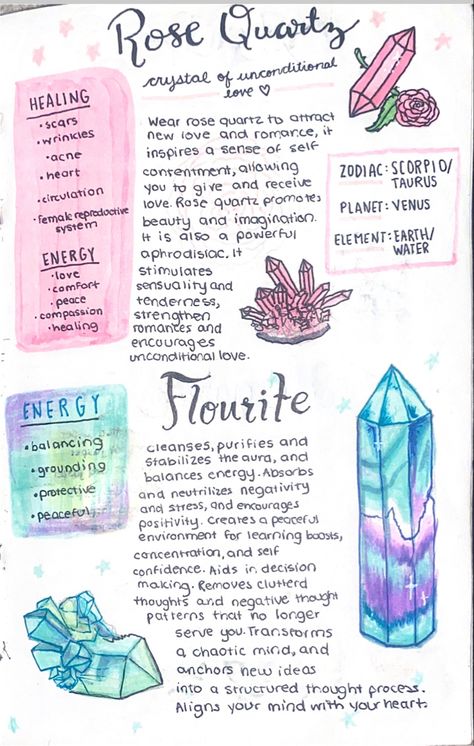 Rose Quartz
crystal of unconditional
love ♡
HEALING
• scars
• wrinkles
• acne
• heart
• circulation
• female reproductive
system
ENERGY
• love
• comfort
• peace
• compassion
• healing
Wear rose quartz to attract
new love and romance, it
inspires a sense of self
contentment, allowing
you to give and receive
love. Rose quartz promotes
beauty and imagination.
It is also a powerful
aphrodisiac. It
stimulates
sensuality and
tenderness,
strengthen
romances and
encourages
unconditional love.
ZODIAC: SCORPIO/
TAURUS
PLANET: VENUS
ELEMENT: EARTH/
WATER
Flourite
ENERGY
• balancing
• grounding
• protective
• peaceful
cleanses, purifies and
stabilizes the aura, and
balances energy. Absorbs
and neutrilizes negativity
and stress, and encourages
positivity. Creates a peaceful
environment for learning boosts,
concentration, and self
confidence. Aids in decision
making. Removes clutterd
thoughts and negative thought
patterns that no longer
serve you. Transforms
a chaotic mind, and
anchors new ideas
into a structured thought process.
Aligns your mind with your heart.